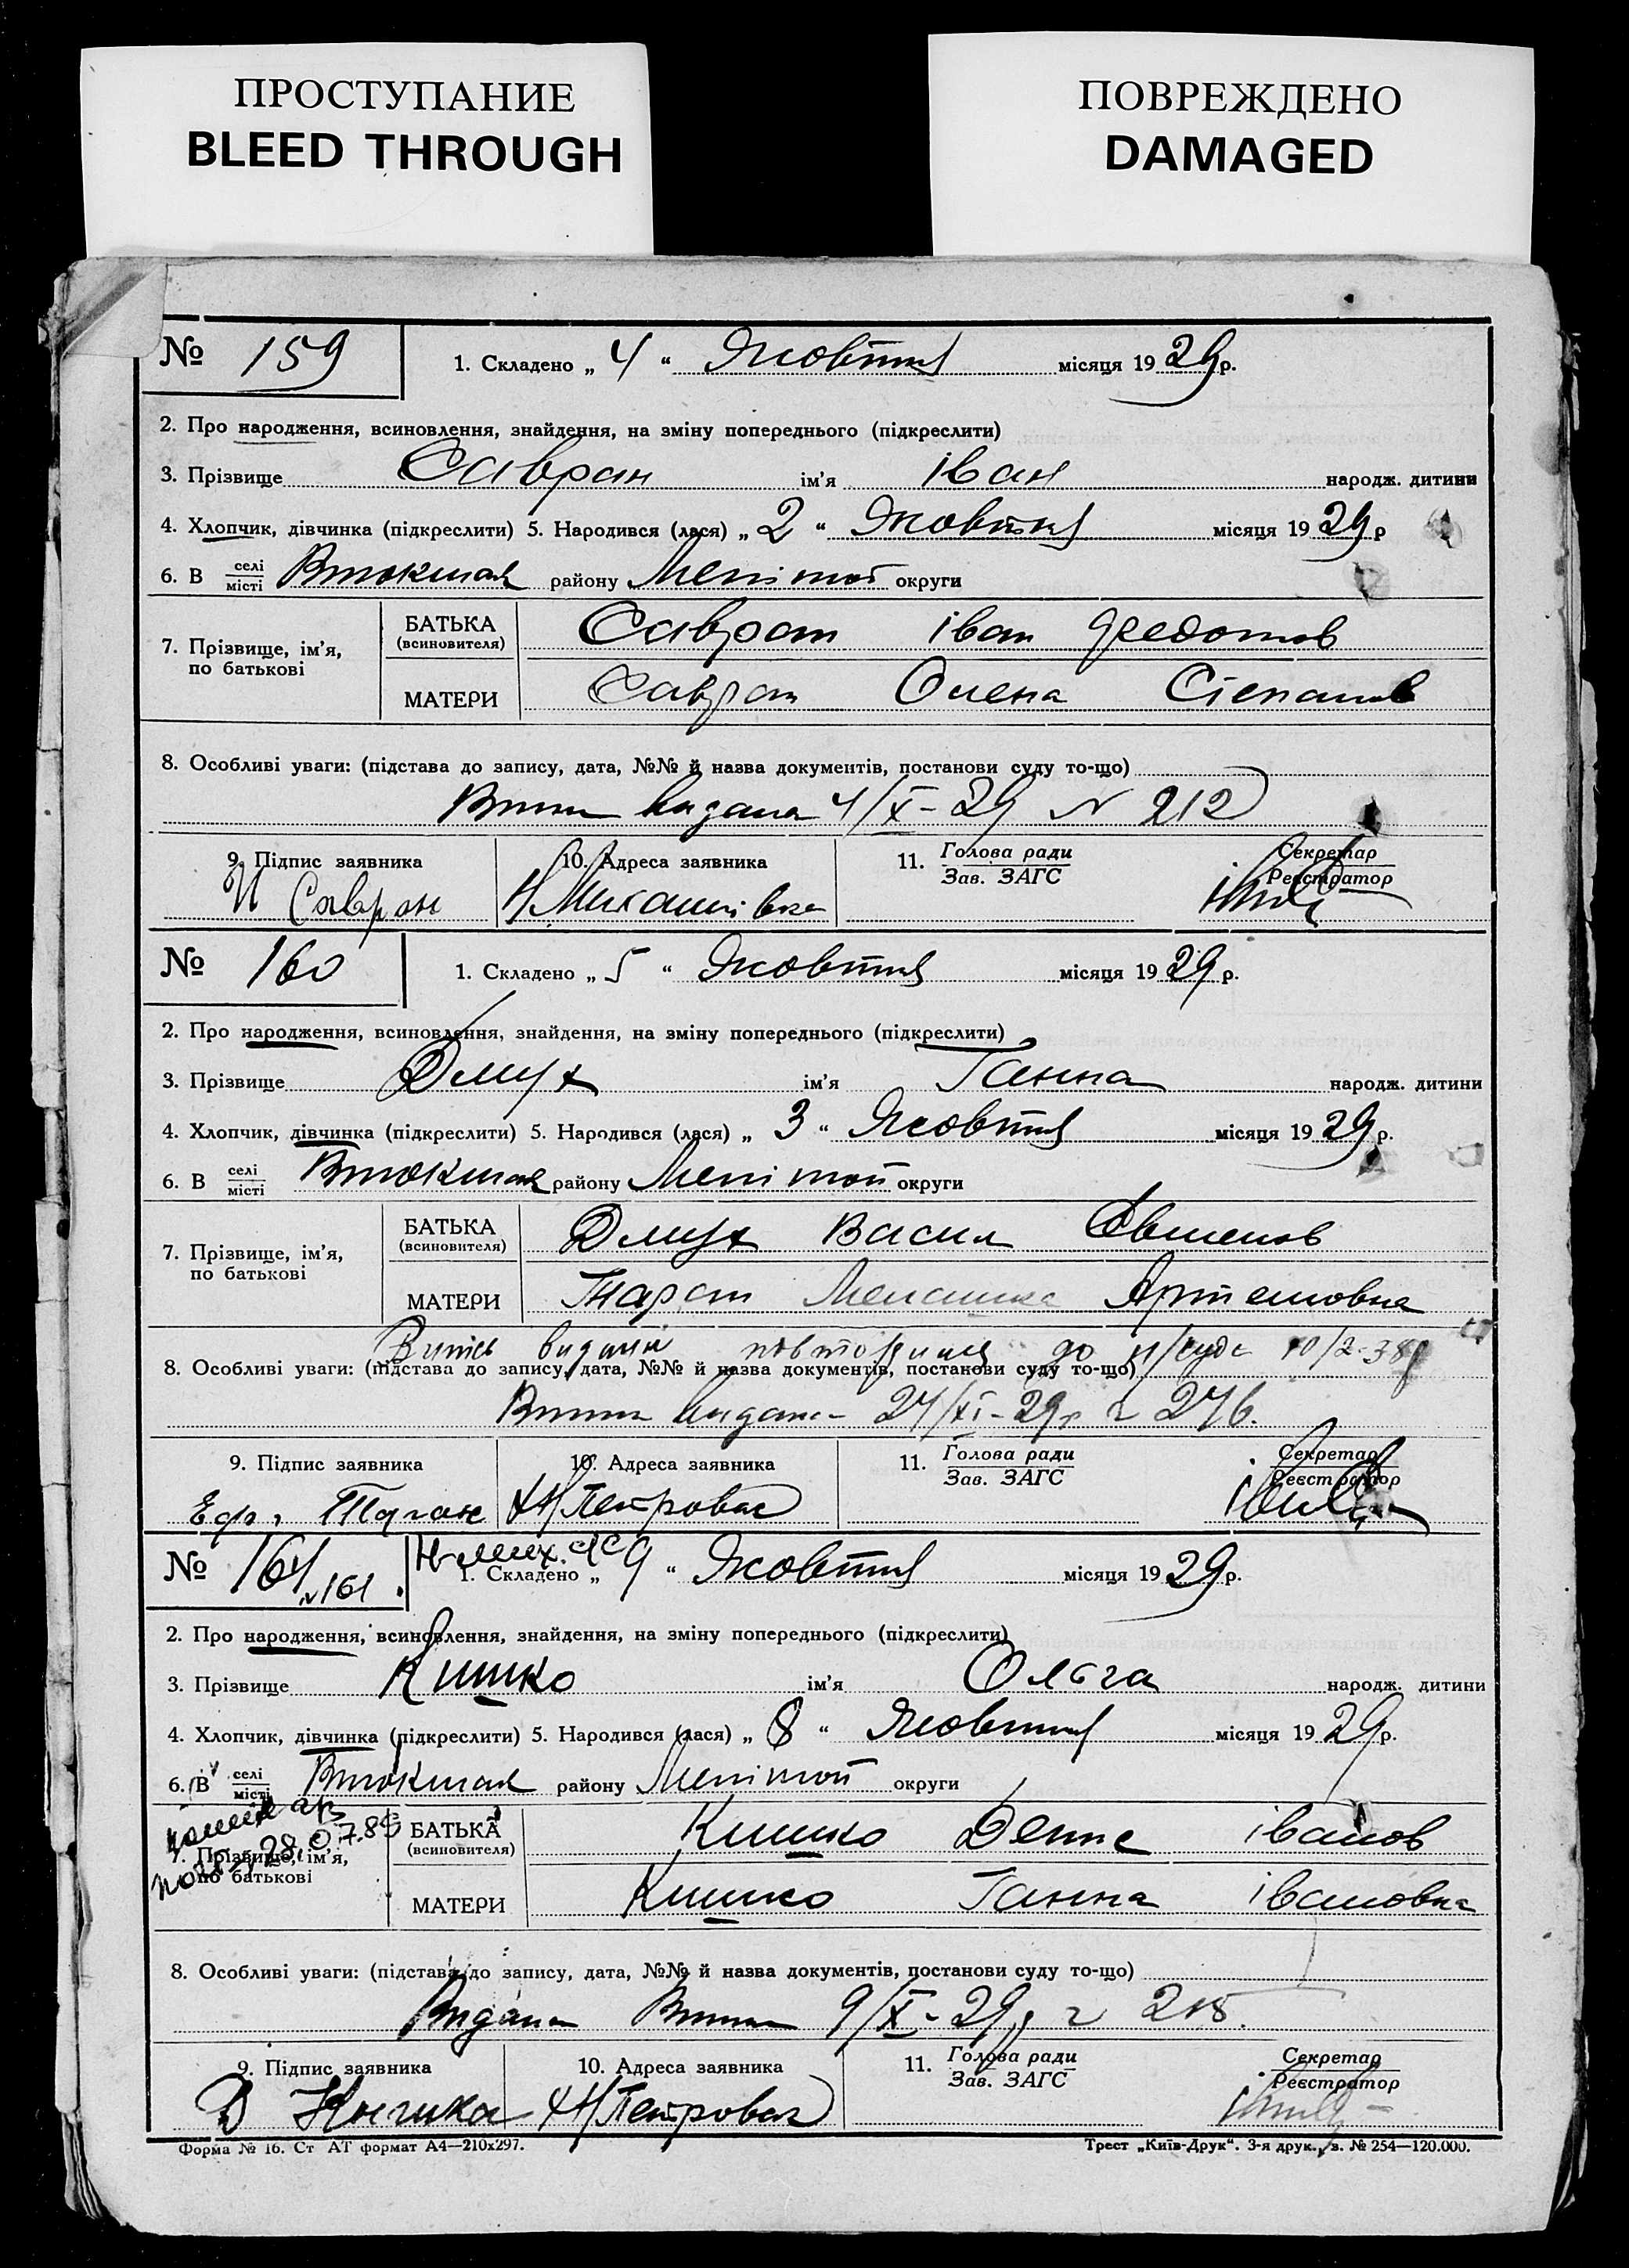 ПРОСТУПАНИЕ
BLEED THROUGH
ПОВРЕЖДЕНО
DAMAGED
№ 159 1. Складено „ 4 “ Жовтня місяця 19 29 р.
2. Про народження, всиновлення, знайдення, на зміну попереднього (підкреслити)
3. Прізвище Савран ім'я Іван народж. дитини
4. Хлопчик, дівчинка (підкреслити) 5. Народився (лася) „ 2 “ Жовтня місяця 19 29 р
6. В селі місті району округи
7. Прізвище, ім'я, по батькові
БАТЬКА (всиновителя) Савран Іван Федотов
МАТЕРИ Савран Олена Степанов
8. Особливі уваги: (підстава до запису, дата, №№ й назва документів, постанови суду то-що)
видана 4/X-29 N 212
9. Підпис заявника 10. Адреса заявника 11. Голова ради Зав. ЗАГС Секретар Реєстратор
И Савран Н Михайлівка
№ 160 1. Складено „ 5 “ Жовтня місяця 19 29 р.
2. Про народження, всиновлення, знайдення, на зміну попереднього (підкреслити)
3. Прізвище ім'я Ганна народж. дитини
4. Хлопчик, дівчинка (підкреслити) 5. Народився (лася) „ 3 “ Жовтня місяця 19 29 р.
6. В селі місті району округи
7. Прізвище, ім'я, по батькові
БАТЬКА (всиновителя) Васил
МАТЕРИ Таран Меланка Артемовна
8. Особливі уваги: (підстава до запису, дата, №№ й назва документів, постанови суду то-що)
видана 27/XI-29р 276.
9. Підпис заявника 10. Адреса заявника 11. Голова ради Зав. ЗАГС Секретар Реєстратор
Н Петровка
№ 161 N161 1. Складено „ 9 “ Жовтня місяця 19 29 р.
2. Про народження, всиновлення, знайдення, на зміну попереднього (підкреслити)
3. Прізвище Кишко ім'я Ольга народж. дитини
4. Хлопчик, дівчинка (підкреслити) 5. Народився (лася) „ 8 “ Жовтня місяця 19 29 р.
6. В селі місті району округи
28.07.85
7. Прізвище, ім'я, по батькові
БАТЬКА (всиновителя) Кишко Денис Іванов
МАТЕРИ Кишко Ганна Івановна
8. Особливі уваги: (підстава до запису, дата, №№ й назва документів, постанови суду то-що)
Видана 9/X-29р 218.
9. Підпис заявника 10. Адреса заявника 11. Голова ради Зав. ЗАГС Секретар Реєстратор
Н Петровка
Форма № 16. Ст АТ формат А4—210х297. Трест „Київ-Друк“. 3-я друк., з. № 254—120.000.